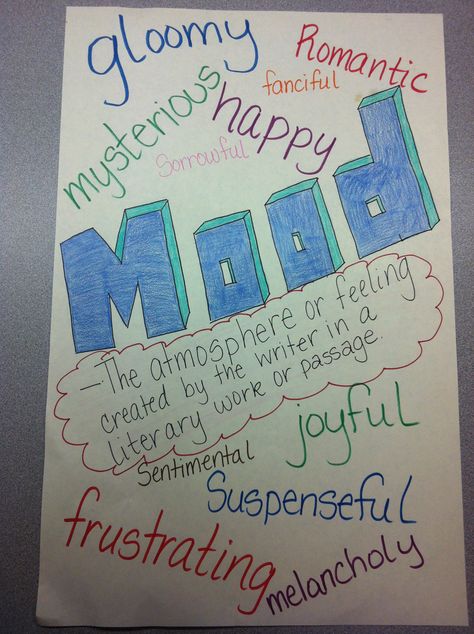 gloomy
Romantic
fanciful
mysterious
happy
Sorrowful
Mood
—The atmosphere or feeling
created by the writer in a
literary work or passage.
joyful
Sentimental
Suspenseful
frustrating
melancholy